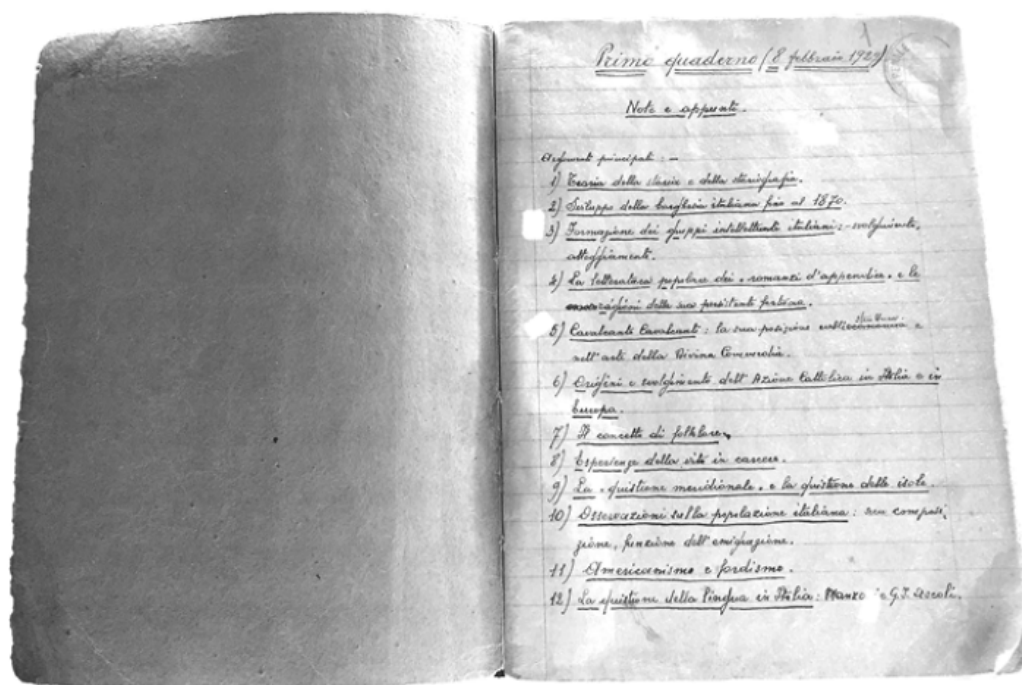 Primo quaderno (8 febbraio 1929)
Note e appunti.
Argomenti principali: —
1) Teoria della storia e della storiografia.
2) Sviluppo della borghesia italiana fino al 1870.
3) Formazione dei gruppi intellettuali italiani: - svolgimento,
atteggiamenti.
4) La letteratura popolare dei "romanzi d'appendice" e le
ragioni della sua persistente fortuna.
5) Cavalcante Cavalcanti: la sua posizione nella e
nell'arte della Divina Commedia.
6) Origini e svolgimento dell'Azione Cattolica in Italia e in
Europa.
7) Il concetto di folklore.
8) Esperienze della vita in carcere.
9) La "quistione meridionale" e la quistione delle isole.
10) Osservazioni sulla popolazione italiana: sua composi-
zione, funzione dell'emigrazione.
11) Americanismo e fordismo.
12) La quistione della lingua in Italia: Manzoni e G.I. Ascoli.